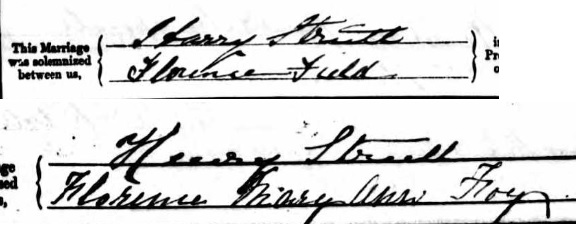 This Marriage was solemnized between us,
Harry Strutt
Florence Field
Henry Strutt
Florence Mary Ann Foy